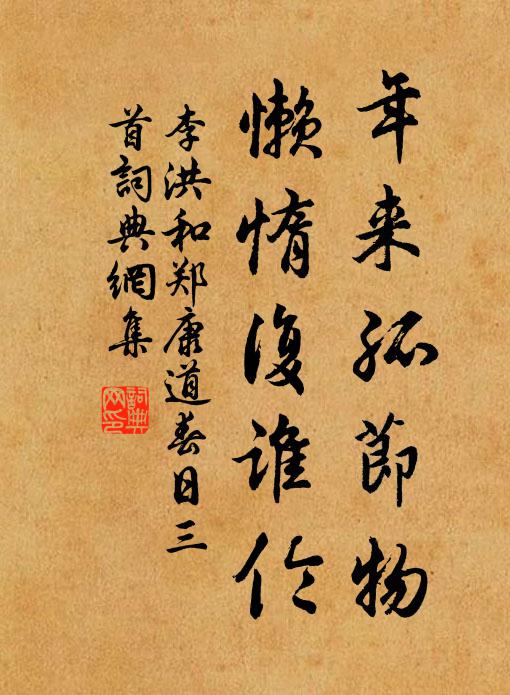 年来孤節物
懒惰復谁伶
李洪和郑康道春日三
首詞典網集
詞典
网印